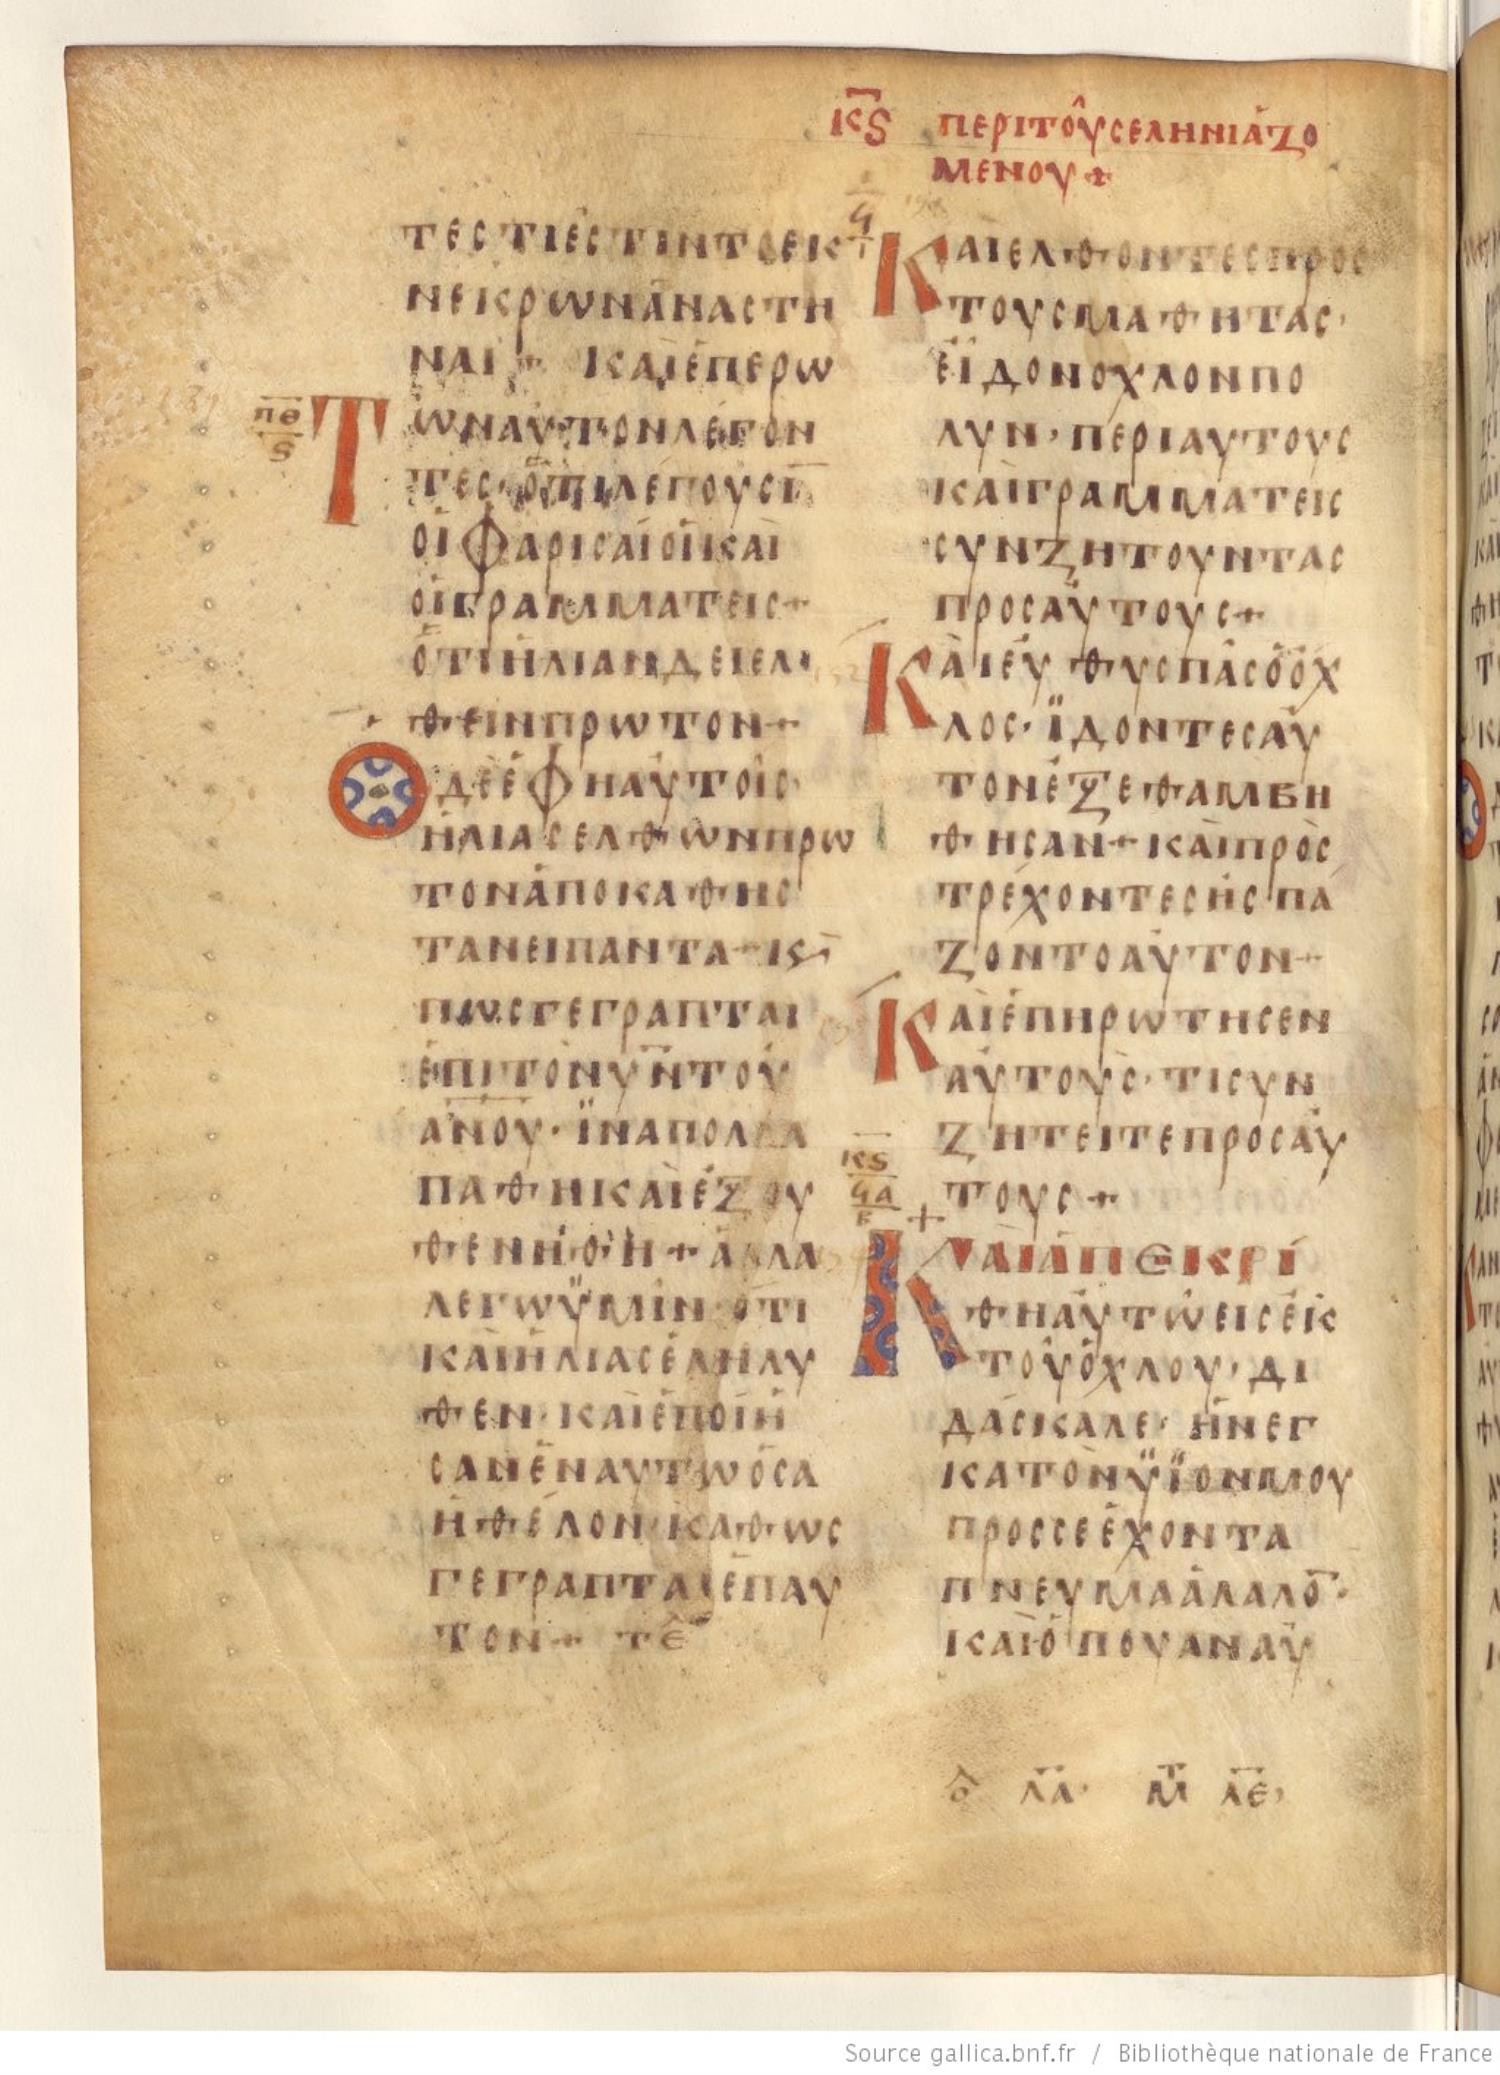 κϛ περιτοῦσεληνιάζο
μενου+
τεςτιέςτιντοεκ
νεκρωνἀναςτη
ναι+ καιἐπερω
πθ
ϛ
Τωναυτονλέγον
τες·ὅτιλέγουσῑ
οἱφαρισαῖοικαὶ
οἱγραμματεις+
ὅτιἠλιανδειελ
θεινπρωτον+
Οδεἐφηαὐτοῖς
ἠλιασελθωνπρω
τονἀποκαθης
τανειπαντα+κϛ
πωςγεγραπται
ἐπιτὸνυν̅του
α̅ν̅ο̅υ̅·ϊναπολλα
παθηκαὶἐξου
θενηθῆ+ἀλλα
λεγωϋμῖν·ὅτι
καὶἠλιασἐληλυ
θεν·καὶἐποίη
σανἐναυτωὅσα
ἠθέλον·καθως
γεγραπταιἐπαυ
τον+ τε̂
ϟ
ι
Καὶελθοντεςπρος
τουςμαθητας·
εἶδονοχλονπο
λυν·περιαυτους
καὶγραμματεις
συνζητουντας
προσαὐτους+
Καὶεὐθυςπᾶςὅὄχ
λος·ϊδοντεςαὐ
τονἐξεθαμβη
θησαν+καὶπρὸς
τρέχοντεςἠςπά
ζοντοαὐτον+
Καὶἐπηρωτησεν
αὐτοὺς·τισυν
ζητειτεπροσαὐ
τους+
κϛ
ϟα
β
Καὶἀπεκρί
θηαὐτῶειςἐκ
τοῦὄχλου·δι
δάσκαλε·ἤνεγ
κατὸνϋϊονμου
προσσεἔχοντα
πνευμαἄλαλο̅·
καὶὅπουαναὐ
λα· λε